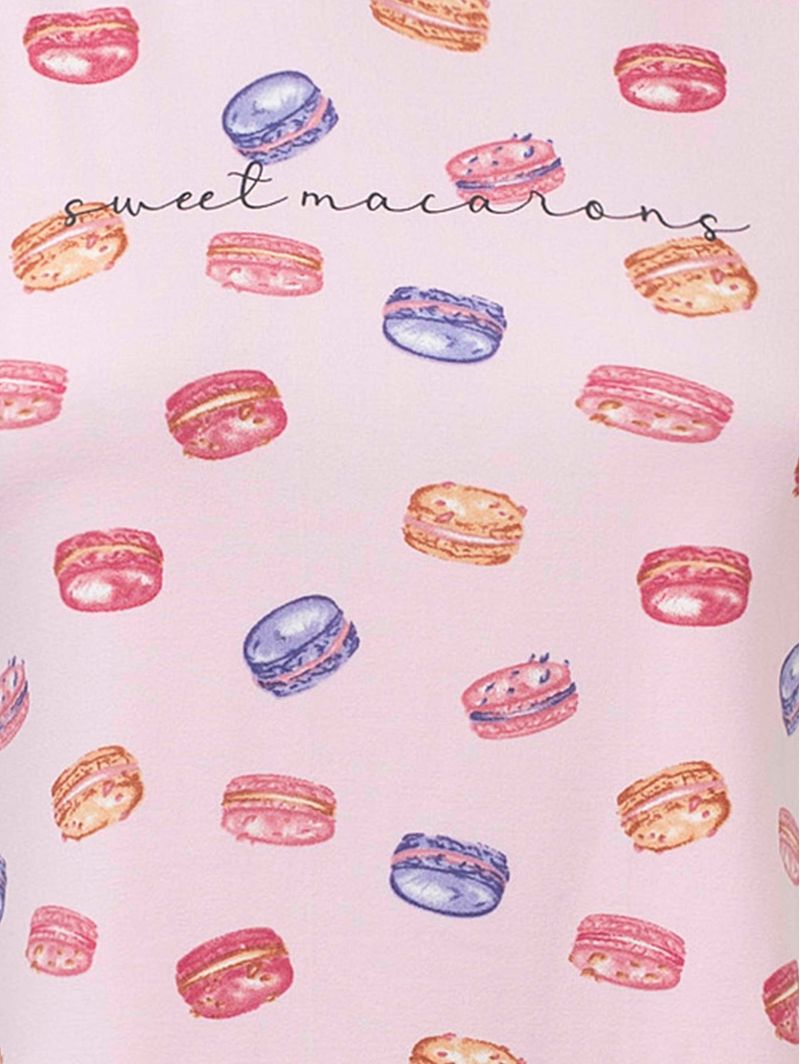 sweet macarons